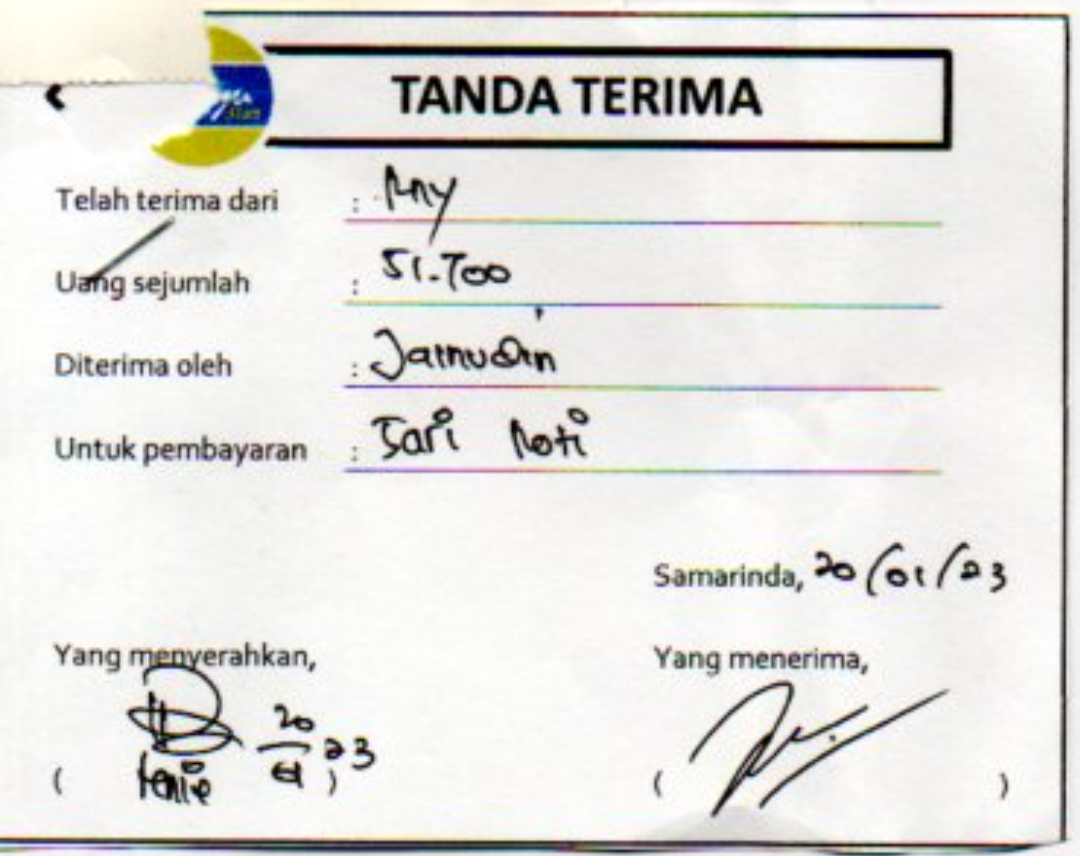 TANDA TERIMA
Telah terima dari :
Uang sejumlah : 51.700
Diterima oleh : Jainudin
Untuk pembayaran : Sari Roti
Samarinda, 20/01/23
Yang menyerahkan, Yang menerima,
20
01 23
( ) ( )